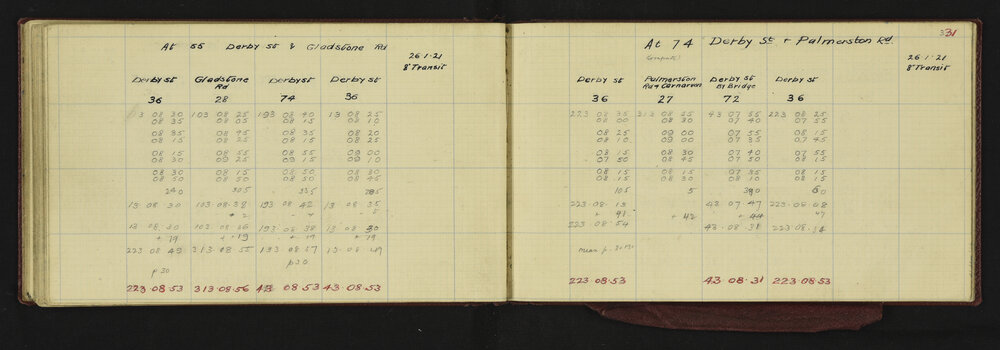 At 55 Derby St & Gladstone Rd
26.1.21
8" Transit
Derby St Gladstone Rd Derby St Derby St
36 28 74 36
13 08 30 103 08 25 193 08 40 13 08 25
08 35 08 05 08 15 08 10
08 35 08 45 08 35 08 20
08 15 08 25 08 15 08 25
08 15 08 55 08 55 09 00
08 30 09 25 09 15 09 10
08 30 08 15 08 50 08 30
08 50 08 50 08 50 08 45
240 305 335
13.08.30 103.08.38 193.08.42 13.08.35
+ 2
13 08 30 193 08 38 13 08 30
+ 19 + 19 + 19 + 19
223 08 49 313.08.55 193 08 57 13.08 49
p30 p30
223.08.53 313.08.56 43 08.53 43.08.53
331
At 74 Derby St & Palmerston Rd
26.1.21
8" Transit
Derby St Palmerston Rd & Carnarvon Derby St by Bridge Derby St
36 27 72 36
223 08 35 313 08 55 43 07 55 223 08 25
08 00 08 30 07 40 07 55
08 25 09 00 07 55 08 15
08 10 09 00 07 35 07 45
08 15 08 30 07 40 07 55
07 50 08 45 07 50 08 15
08 15 08 15 08 15 08 15
08 15 08 30 08 10 08 15
105 5 60
223.08.13 43 07 47 223.08.08
+ 41 + 42 + 44 47
223.08.54 43.08.31
mean p.
223.08.53 43.08.31 223.08.53